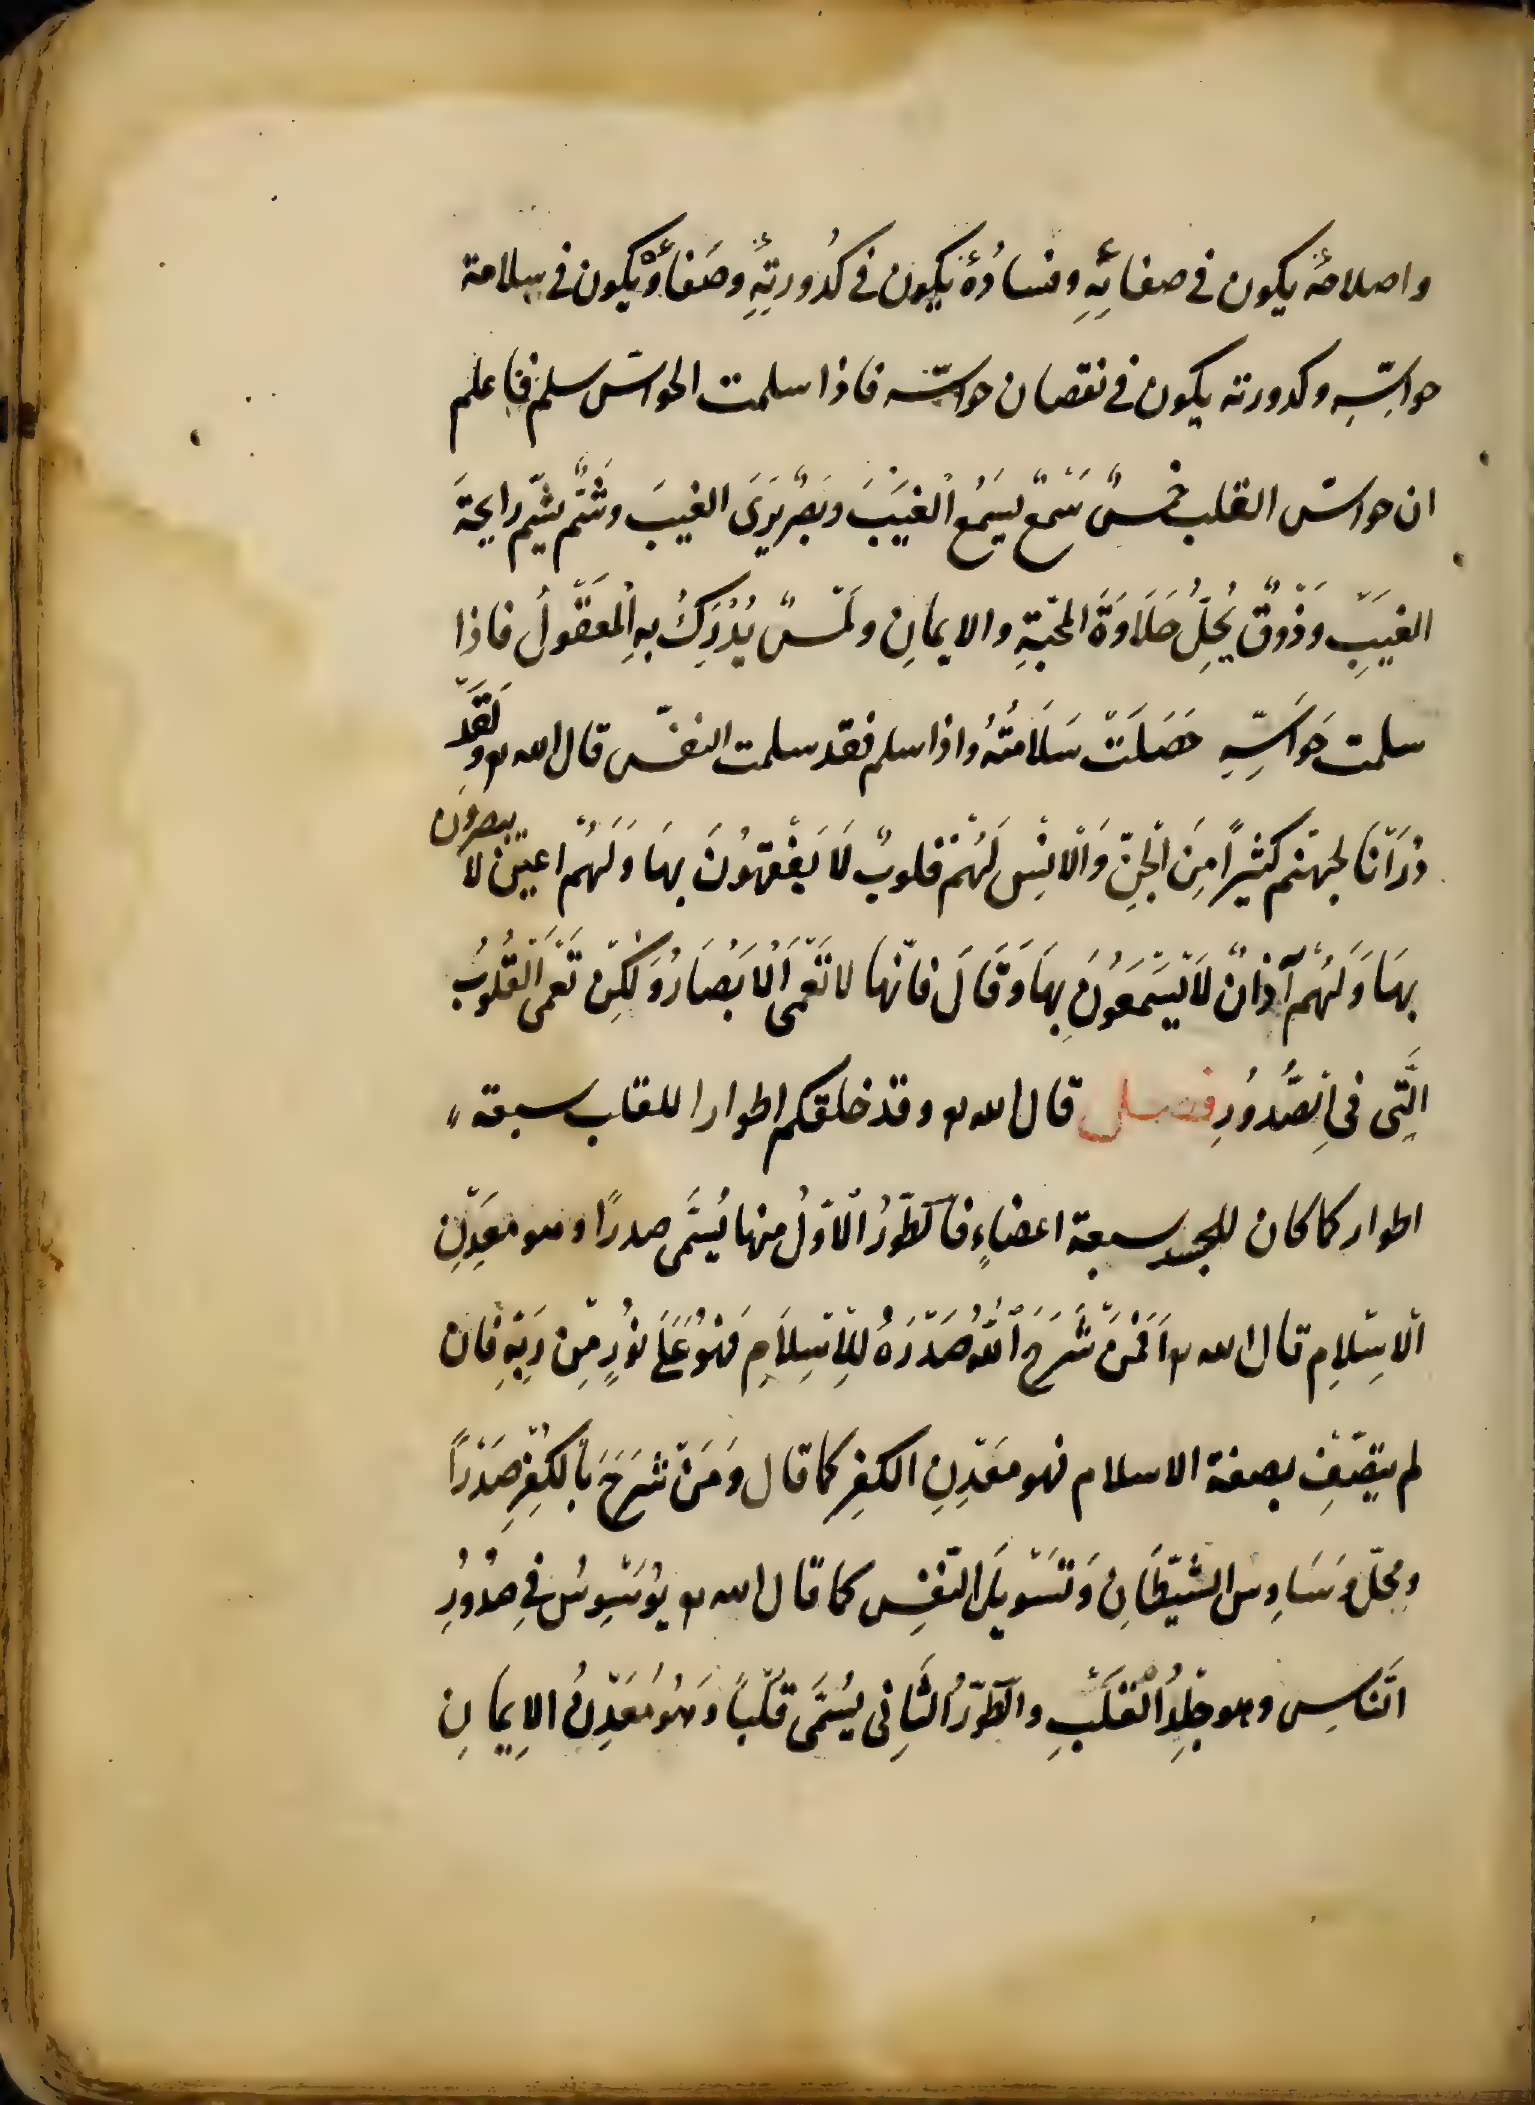 واصلاحهُ يكون فى صفائِهِ وفسادُهُ يكون فى كدُورتِهِ وصَفاؤُهُ يكون فى سلامة
حواسِّهِ وكدورته يكون فى نقصان حواسّه فاذا سلمت الحواسّ سلم فاعلم
ان حواسّ القلب خمسٌ سَمْعٌ يسَمَعُ الْغيَبَ وبَصَرٌ يَرَىَ الغيبَ وشَمٌّ يشّم رايحةَ
الغيَبِ وَذَوْقٌ يُحِلُّ حَلَاوَةَ المحَبّةِ والايمانِ ولَمْسٌ يُدْرَكُ بهِ اْلمعَقُولُ فاذا
سلمت حَوَاسِّهِ حَصَلَتْ سَلَامتُهُ واذا سلم فقد سلمت النفس قال الله تع وَلَقَدْ
ذرَأنَا لجهنّم كثيرًا مِنَ الْجِنِّ وَالْانْسِ لَهُمْ قلوبٌ لَا يَفْقَهُونَ بهَا وَلَهُمْ اعينٌ لا يبصرون
بهَا وَلَهُمْ آذانٌ لَا يَسْمَعُونَ بِهَا وَقَالَ فانّها لا تَعْمَى الْابْصَارُ وَلكِنْ تَعْمَى الْقُلُوبُ
الَّتِى فىِ الصُّدُورِ فصل قال الله تع وقد خلقكم اطوارا للقلب سبعة
اطوار كما كان للجسد سبعة اعضاءٍ فالطَّوْرُ الْاوّلُ منها يُسَمَّى صدرًا وهو معَدِنِ
الْاسِلامِ قال الله تع اَفَمَنْ شَرَحَ اللهُ صَدْرَهُ لِلْاِسْلَامِ فَهُوَ عَلَى نوُرٍ مِنْ رَبِّهِ فان
لم يتصّفِ بصفة الاسلام فهو معَدِنِ الكفرِ كما قال وَمَنْ شَرَحَ بِالْكفِرْ صَدْرًا
ومحلّ وَسَاوِس الشّيْطَانِ وَتسَوْيل النّفسِ كما قال الله تع يوُسْوِسُ فىِ صُدُورِ
النَّاسِ وهو جِلْدُ الْقَلْبِ والطّوْرُ الثَّانِى يسُمَّى قَلْباً وَهُوَ مَعْدِنُ الاِيمانِ